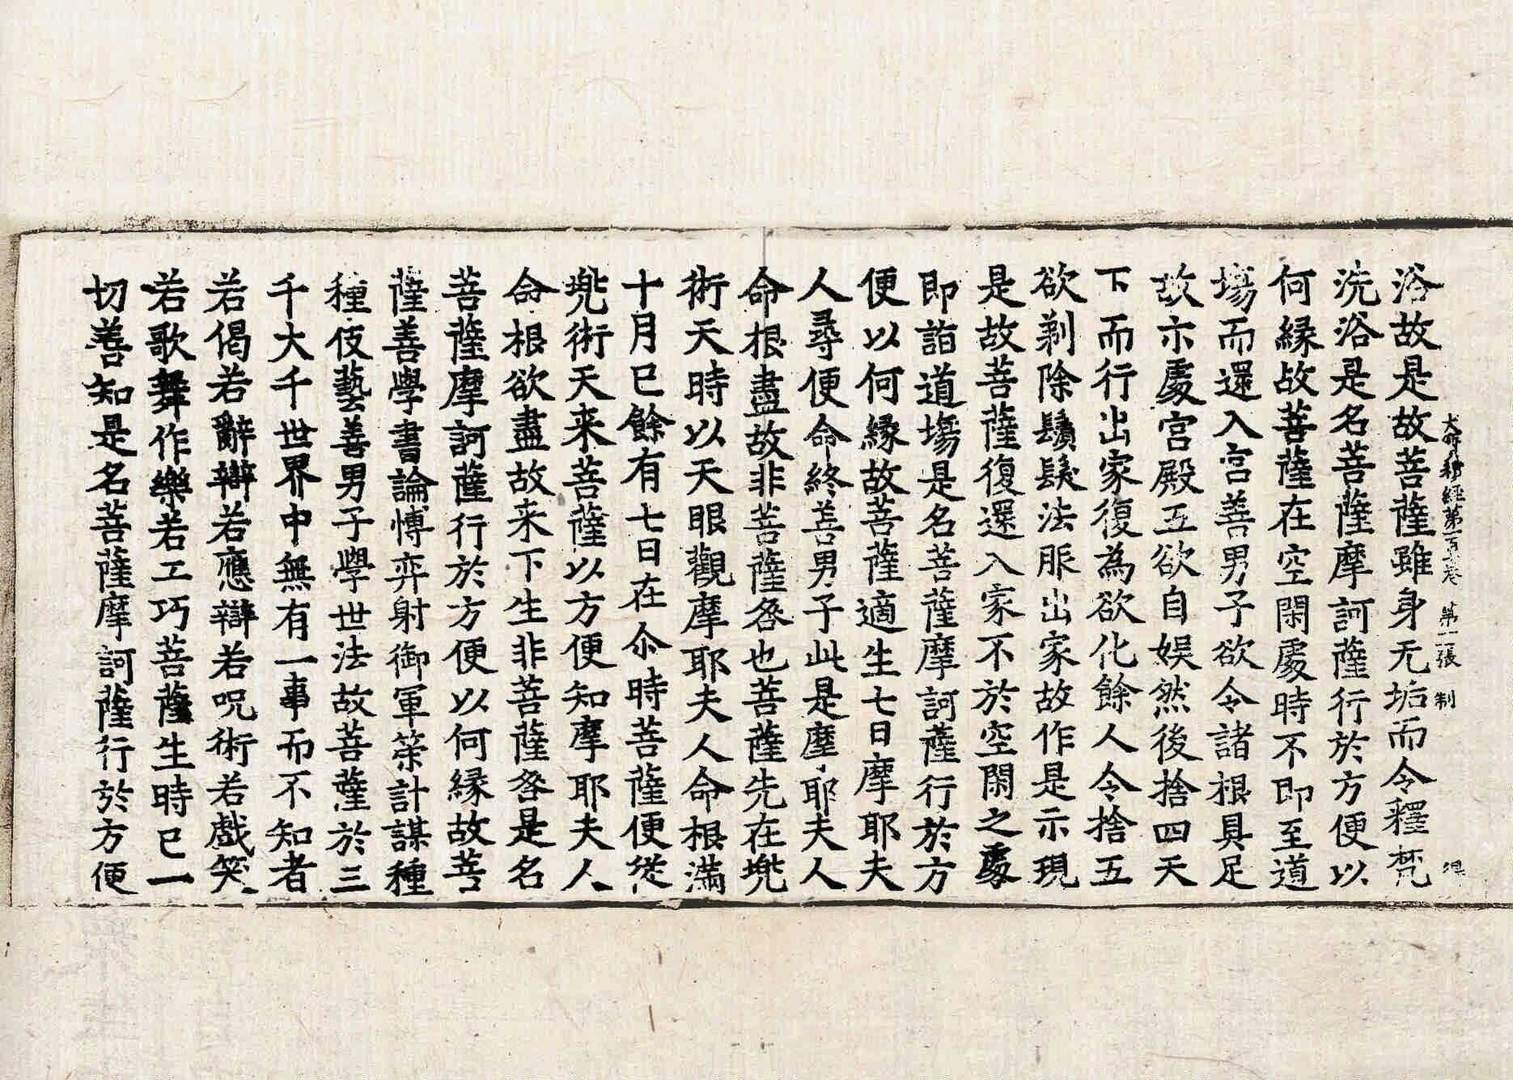 大寶積經第一百七卷 第二張 制
浴故是故菩薩雖身无垢而令釋梵
洗浴是名菩薩摩訶薩行於方便以
何緣故菩薩在空閑處時不即至道
場而還入宮善男子欲令諸根具足
故亦處宮殿五欲自娛然後捨四天
下而行出家復為欲化餘人令捨五
欲剃除鬚髮法服出家故作是示現
是故菩薩復還入家不於空閑之處
即詣道場是名菩薩摩訶薩行於方
便以何緣故菩薩適生七日摩耶夫
人尋便命終善男子此是摩耶夫人
命根盡故非菩薩咎也菩薩先在兠
術天時以天眼觀摩耶夫人命根滿
十月已餘有七日在尒時菩薩便從
兠術天来菩薩以方便知摩耶夫人
命根欲盡故来下生非菩薩咎是名
菩薩摩訶薩行於方便以何緣故菩
薩善學書論博弈射御軍筞計謀種
種伎藝善男子學世法故菩薩於三
千大千世界中無有一事而不知者
若偈若辭辯若應辯若呪術若戲笑
若歌舞作樂若工巧菩薩生時已一
切善知是名菩薩摩訶薩行於方便